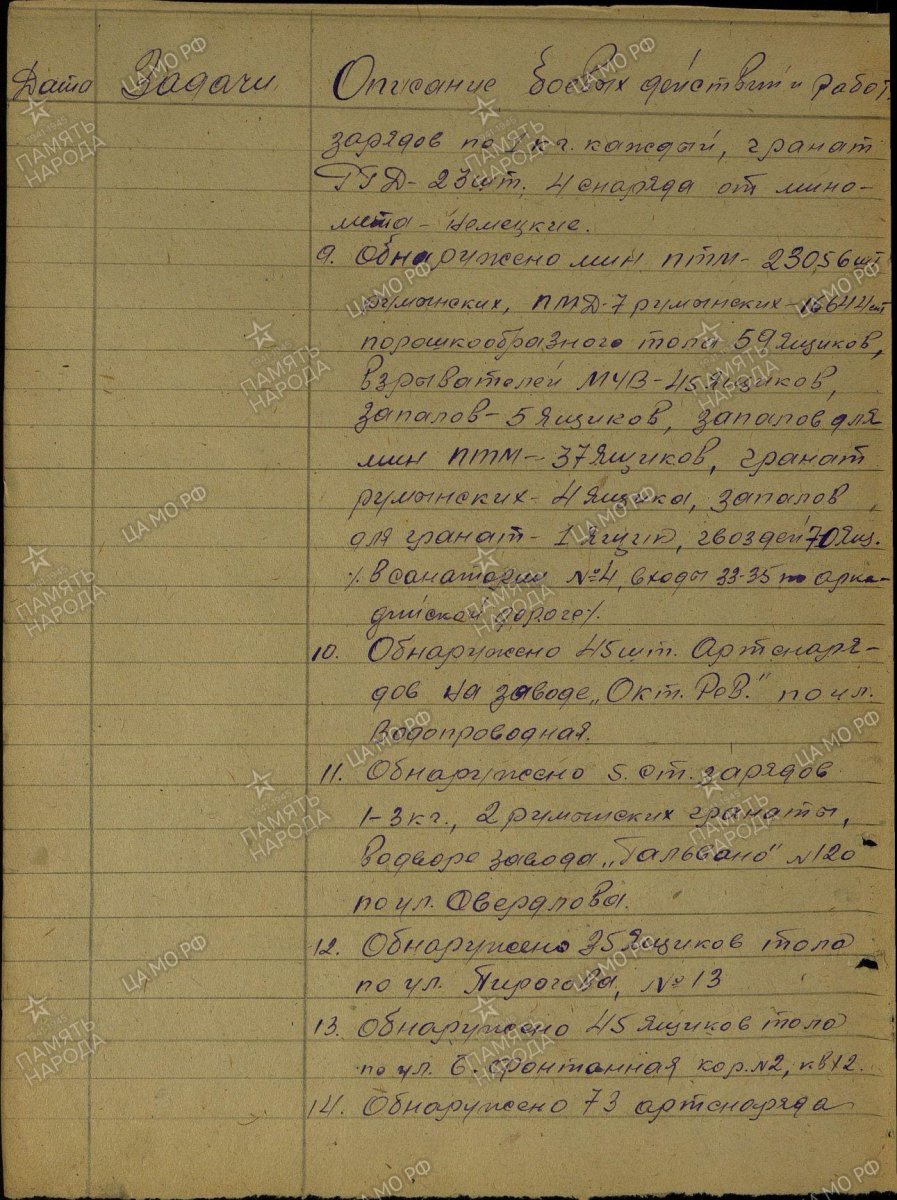 Дата Задачи Описание боевых действий и работ.
зарядов по 1 кг. каждый, гранат
РГД-23 шт. 4 снаряда от мино-
мета - немецкие.
9. Обнаружено мин ПТМ- 23056 шт
румынских, ПМД-7 румынских-16644 шт
порошкообразного тола 59 ящиков,
взрывателей МУВ-45 ящиков,
запалов-5 ящиков, запалов для
мин ПТМ-37 ящиков, гранат
румынских-4 ящика, запалов
для гранат-1 ящик, гвоздей 70 ящ.
/. В санатории №4, входы 33-35 по арка-
дийской дороге/.
10. Обнаружено 45 шт. Артснаря-
дов на заводе „Окт. Рев." по ул.
Водопроводная.
11. Обнаружено 5. ст. зарядов
1-3 кг., 2 румынских гранаты,
во дворе завода „Гальвано" №120
по ул. Свердлова.
12. Обнаружено 35 ящиков тола
по ул. Пирогова, №13
13. Обнаружено 45 ящиков тола
по ул. Б. Фонтанная кор. №2, кв 12.
14. Обнаружено 73 артснаряда
ЦАМО РФ
1941-1945
ПАМЯТЬ
НАРОДА